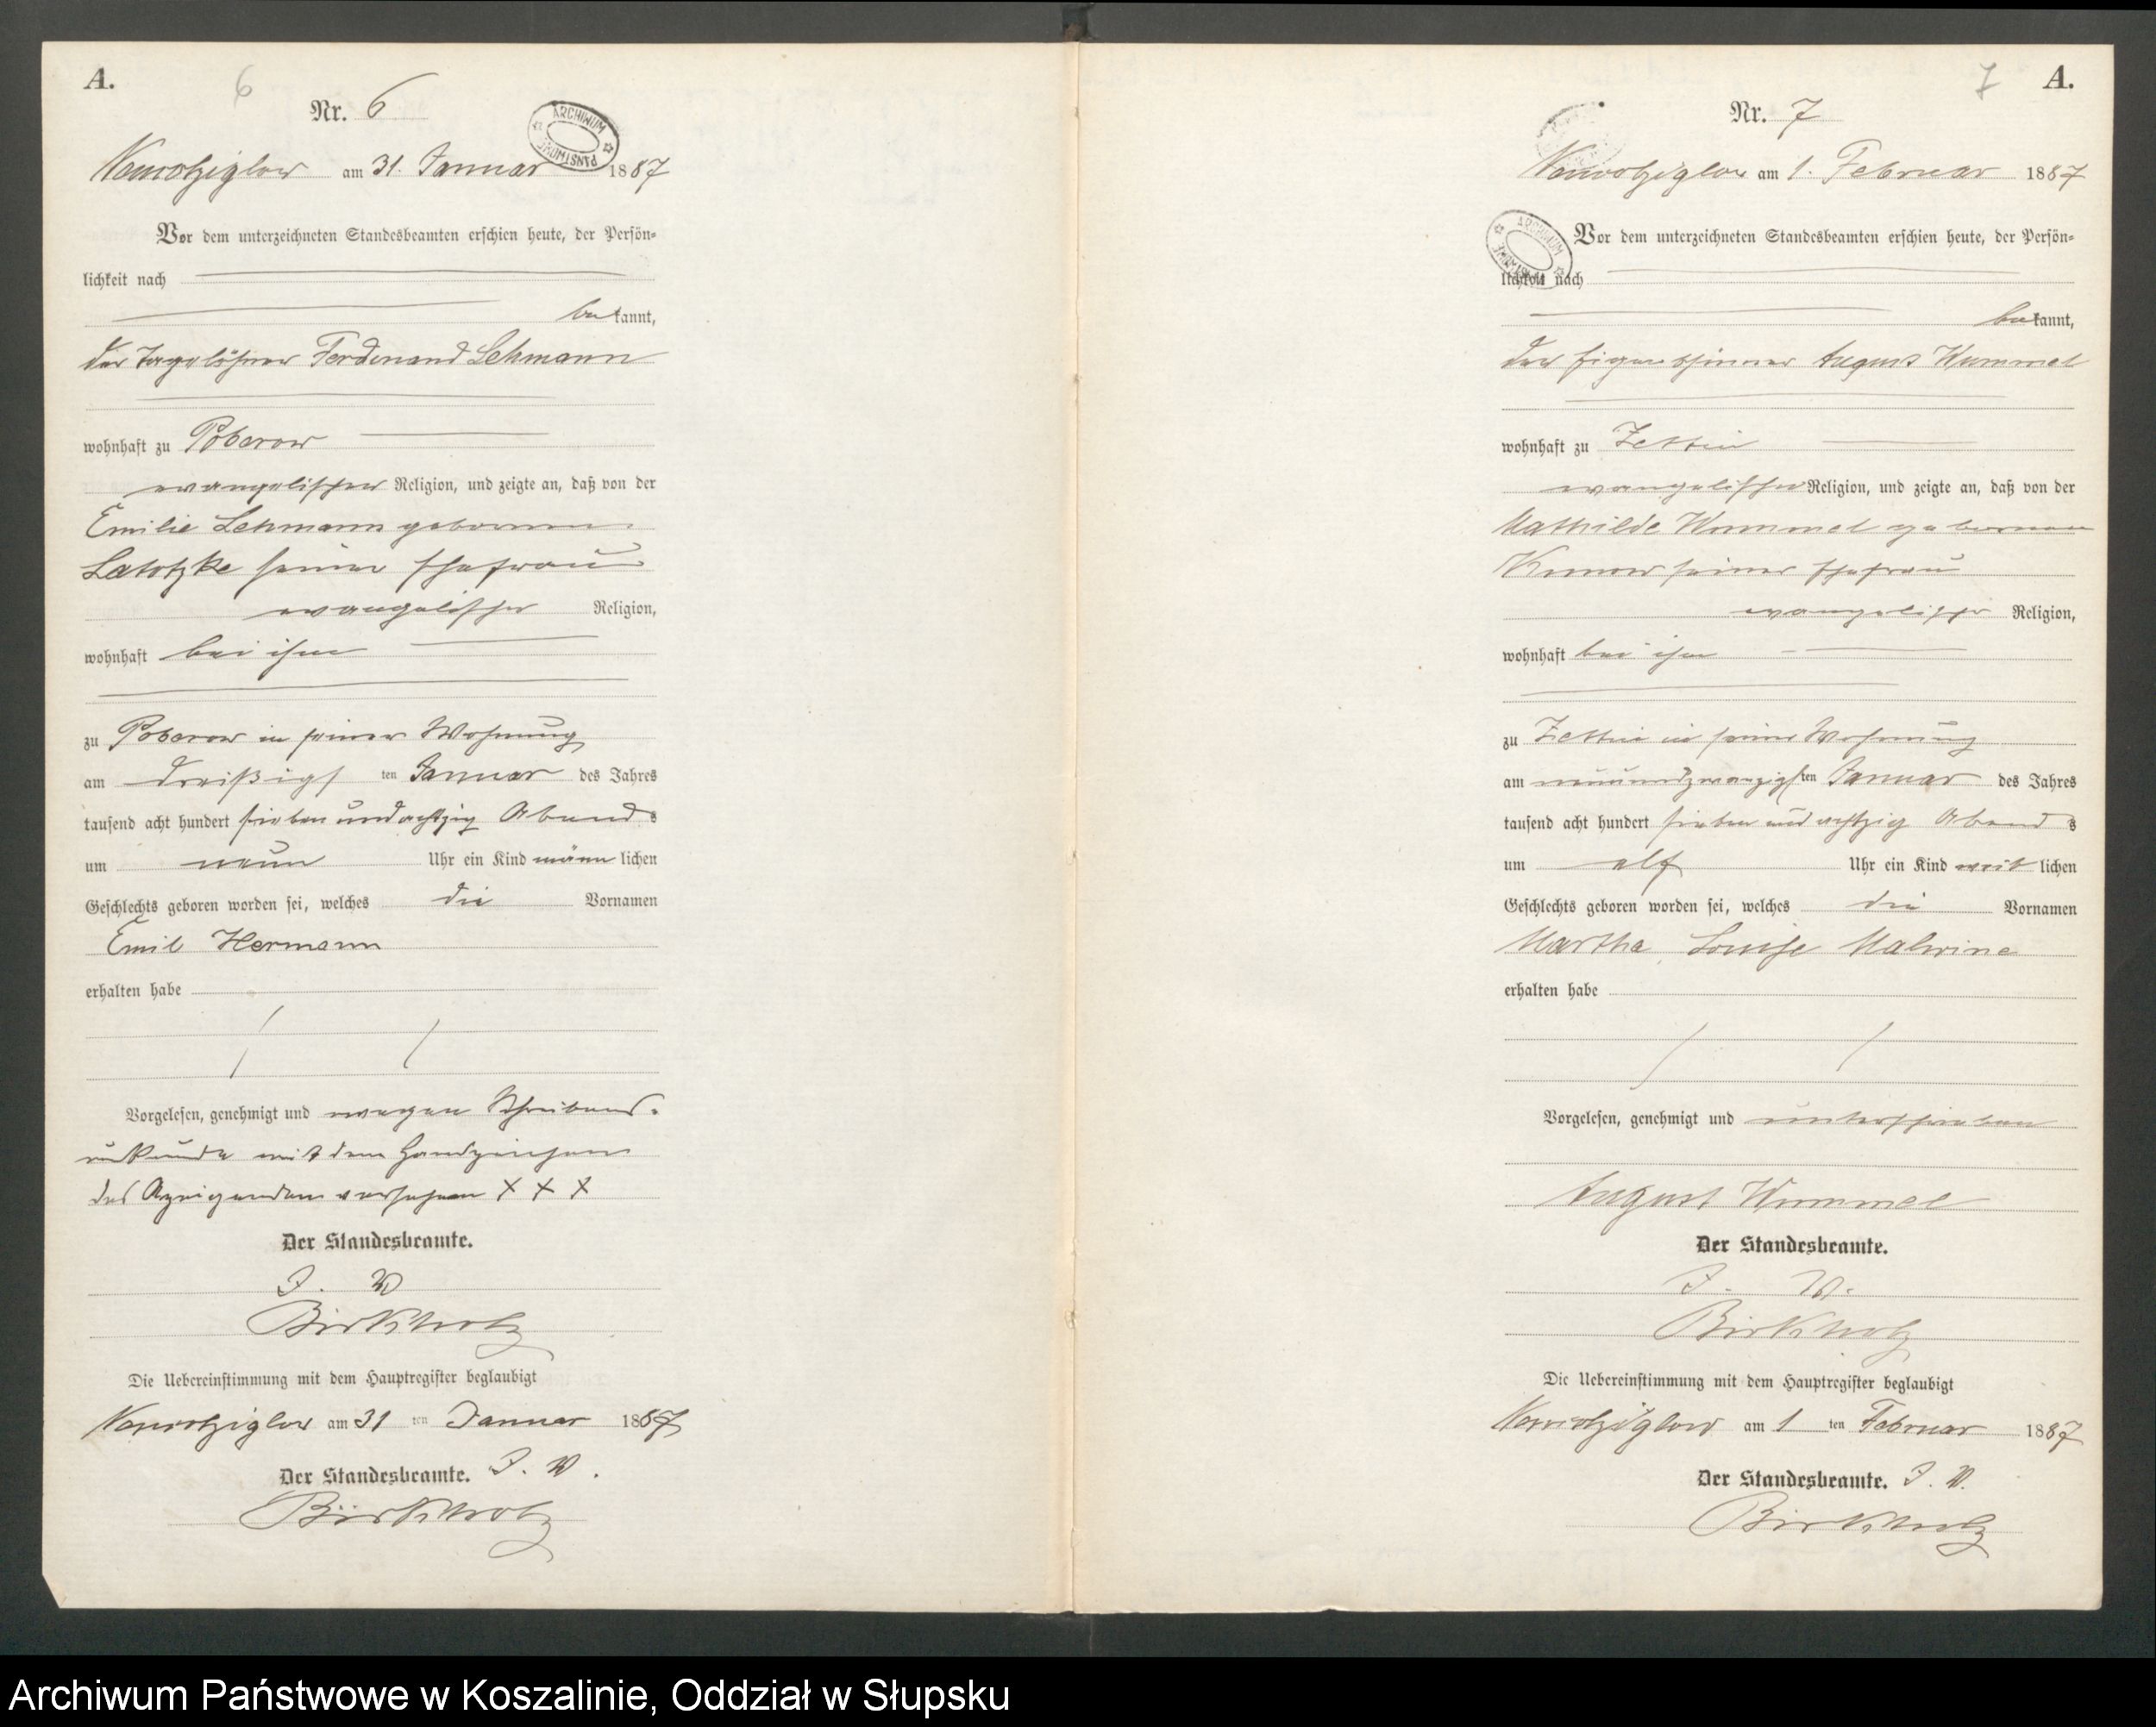 A.
6
Nr. 6
ARCHIWUM PAŃSTWOWE
Neuwolziglow am 31. Januar 1887
Vor dem unterzeichneten Standesbeamten erschien heute, der Persön-
lichkeit nach
bekannt,
der Tagelöhner Ferdinand Lehmann
wohnhaft zu Poberow
evangelischer Religion, und zeigte an, daß von der
Emilie Lehmann geborenen
Latotzke seiner Ehefrau
evangelischer Religion,
wohnhaft bei ihm
zu Poberow in seiner Wohnung
am dreißigs ten Januar des Jahres
tausend acht hundert sieben und achtzig Abends
um neun Uhr ein Kind männlichen
Geschlechts geboren worden sei, welches die Vornamen
Emil Hermann
erhalten habe
Vorgelesen, genehmigt und wegen Schreibens-
unkunde mit dem Handzeichen
des Anzeigenden versehen X X X
Der Standesbeamte.
J. V
Birkholz
Die Uebereinstimmung mit dem Hauptregister beglaubigt
Neuwolziglow am 31 ten Januar 1887
Der Standesbeamte. J. V.
Birkholz
7
A.
Nr. 7
Neuwolziglow am 1. Februar 1887
ARCHIWUM PAŃSTWOWE
Vor dem unterzeichneten Standesbeamten erschien heute, der Persön-
lichkeit nach
bekannt,
der Eigenthümer August Wummel
wohnhaft zu Zettin
evangelischer Religion, und zeigte an, daß von der
Mathilde Wummel geborenen
Kunow seiner Ehefrau
evangelischer Religion,
wohnhaft bei ihm
zu Zettin in seiner Wohnung
am neunundzwanzigsten Januar des Jahres
tausend acht hundert sieben und achtzig Abends
um elf Uhr ein Kind weiblichen
Geschlechts geboren worden sei, welches die Vornamen
Martha, Louise Malwine
erhalten habe
Vorgelesen, genehmigt und unterschrieben
August Wummel
Der Standesbeamte.
J. V.
Birkholz
Die Uebereinstimmung mit dem Hauptregister beglaubigt
Neuwolziglow am 1 ten Februar 1887
Der Standesbeamte. J. V.
Birkholz
Archiwum Państwowe w Koszalinie, Oddział w Słupsku